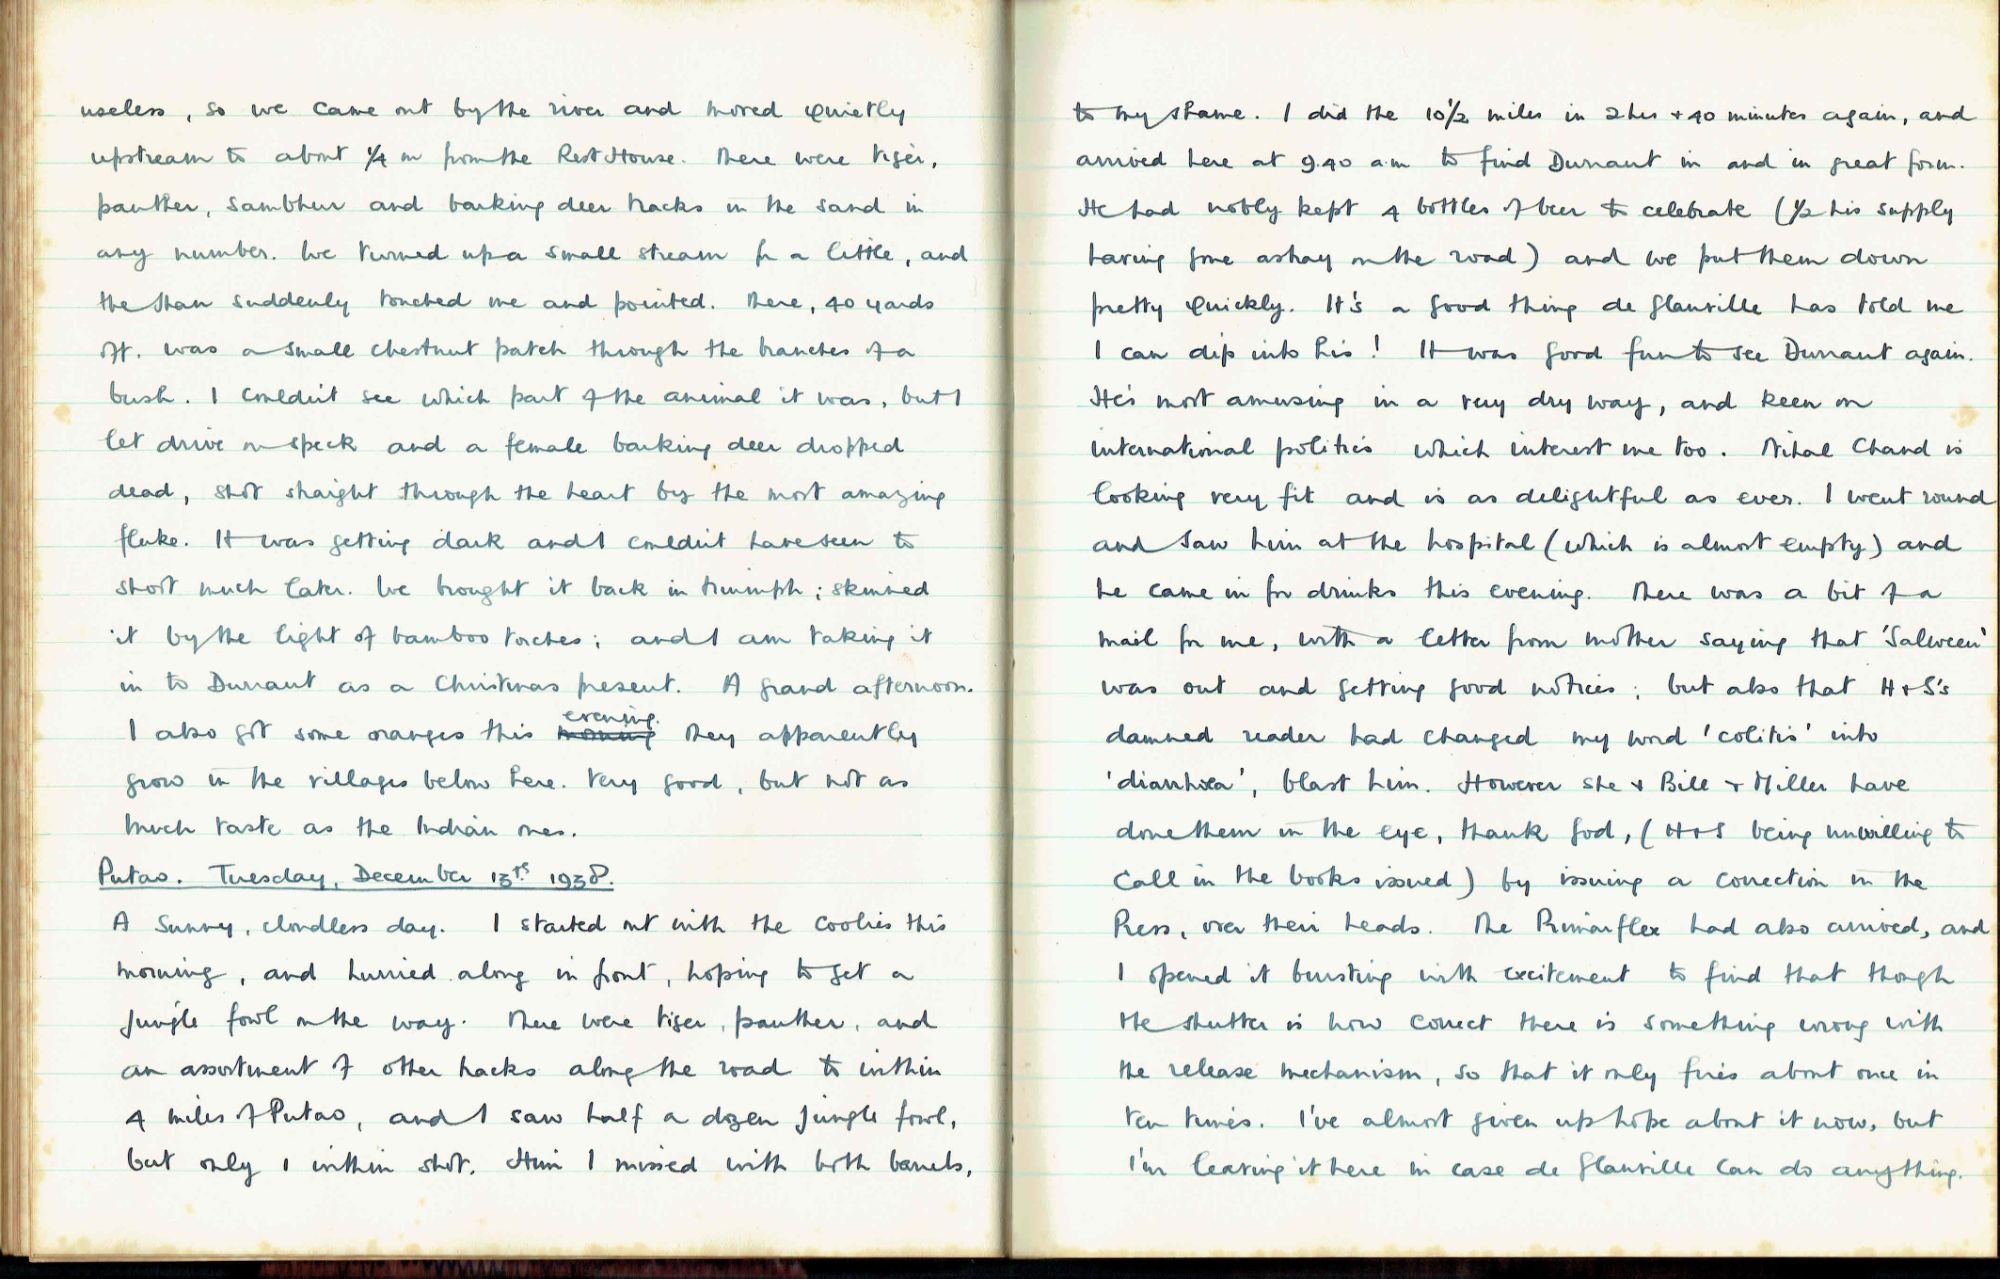 useless, so we came out by the river and moved quietly
upstream to about 1/4 m from the Rest House. There were tiger,
panther, sambhur and barking deer tracks in the sand in
any number. We turned up a small stream for a little, and
the Shan suddenly touched me and pointed. There, 40 yards
off. was a small chestnut patch through the branches of a
bush. I couldn't see which part of the animal it was, but I
let drive on speck and a female barking deer dropped
dead, shot straight through the heart by the most amazing
fluke. It was getting dark and I couldn't have seen to
shoot much later. We brought it back in triumph; skinned
it by the light of bamboo torches; and I am taking it
in to Durrant as a Christmas present. A grand afternoon.
evening.
I also got some oranges this morning They apparently
grow in the villages below here. Very good, but not as
much taste as the Indian ones.
Putao. Tuesday, December 13th 1938.
A Sunny, cloudless day. I started out with the coolies this
morning, and hurried along in front, hoping to get a
jungle fowl on the way. There were tiger, panther, and
an assortment of other tracks along the road to within
4 miles of Putao, and I saw half a dozen jungle fowl,
but only 1 within shot. Him I missed with both barrels,
to my shame. I did the 10 1/2 miles in 2 hrs + 40 minutes again, and
arrived here at 9.40 a.m to find Durrant in and in great form.
He had nobly kept 4 bottles of beer to celebrate (1/2 his supply
having gone astray on the road) and we put them down
pretty quickly. It's a good thing de Glanville has told me
I can dip into his! It was good fun to see Durrant again.
He's most amusing in a very dry way, and keen on
international politics which interest me too. Nihal Chand is
looking very fit and is as delightful as ever. I went round
and saw him at the hospital (which is almost empty) and
he came in for drinks this evening. There was a bit of a
mail for me, with a letter from mother saying that 'Salween'
was out and getting good notices; but also that H + S's
damned reader had changed my word 'colitis' into
'diarrhoea', blast him. However she + Bill + Miller have
done them in the eye, thank God, (H+S being unwilling to
call in the books issued) by issuing a correction in the
Press, over their heads. The Primarflex had also arrived, and
I opened it bursting with excitement to find that though
the shutter is now correct there is something wrong with
the release mechanism, so that it only fires about once in
ten times. I've almost given up hope about it now, but
I'm leaving it here in case de Glanville can do anything.